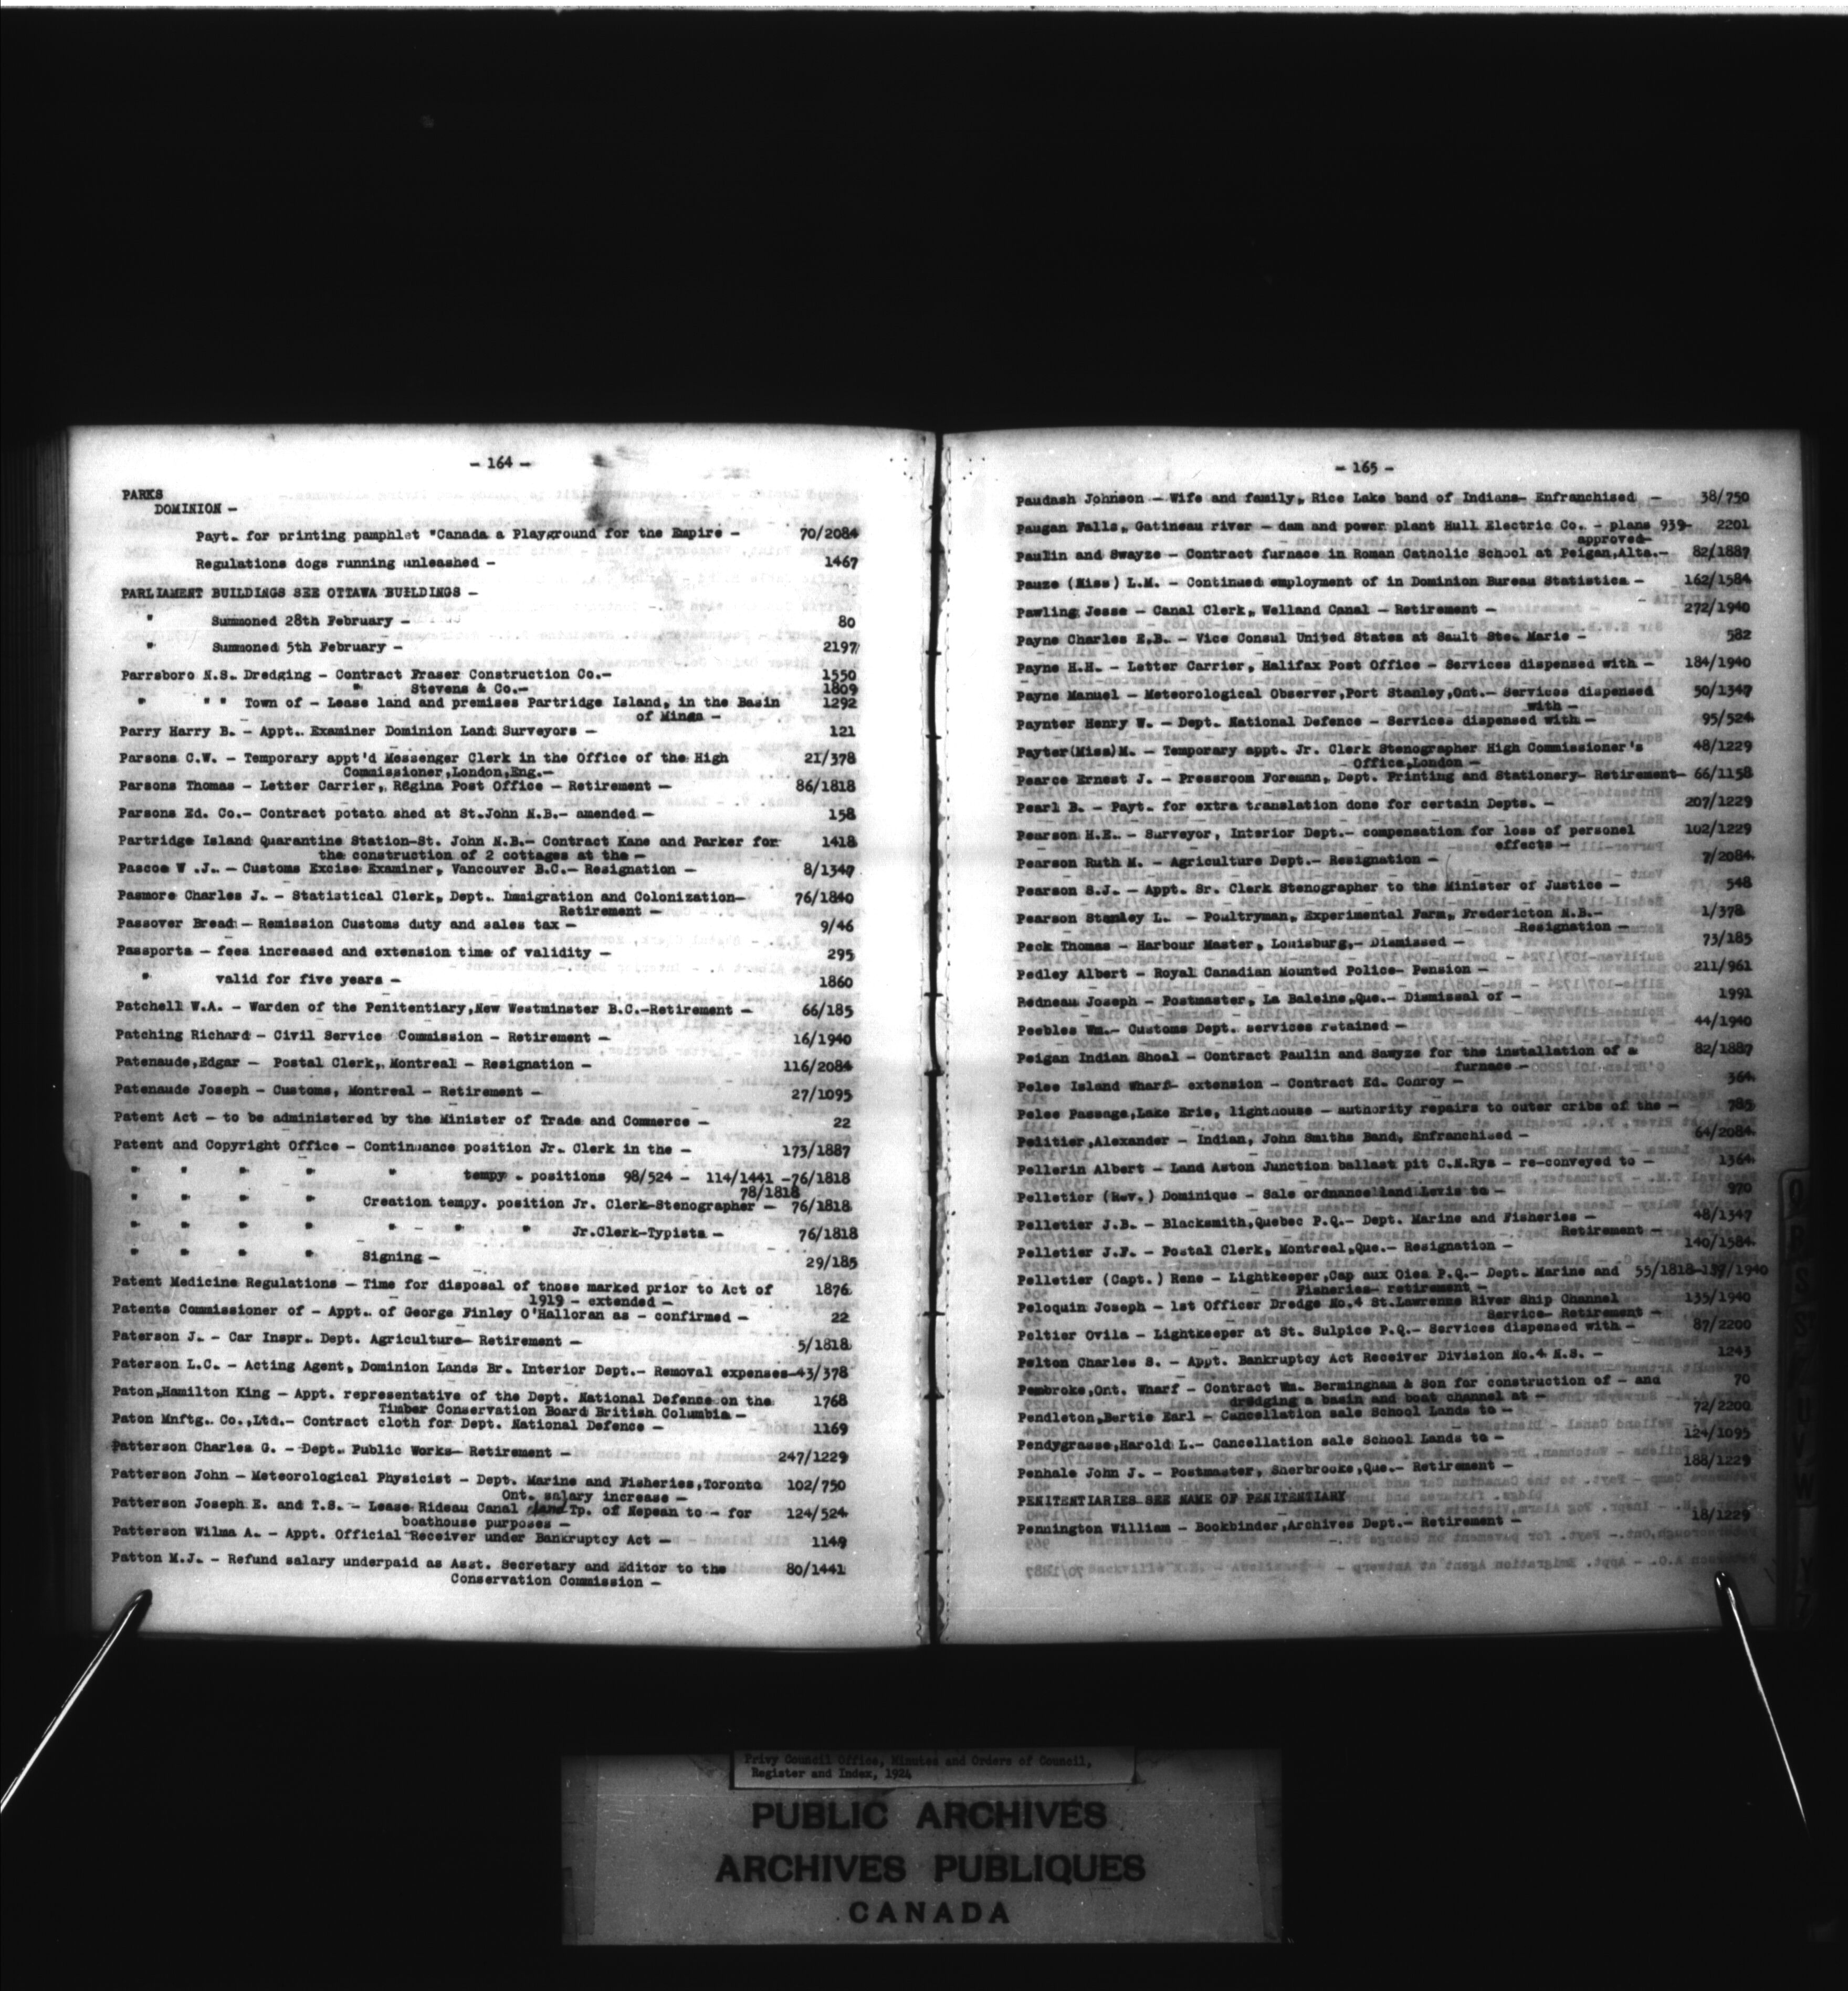 - 164 -
PARKS
DOMINION -
Payt. for printing pamphlet "Canada a Playground for the Empire - 70/2084
Regulations dogs running unleashed - 1467
PARLIAMENT BUILDINGS SEE OTTAWA BUILDINGS -
" Summoned 28th February - 80
" Summoned 5th February - 2197
Parrsboro N.S. Dredging - Contract Fraser Construction Co.- 1550
" Stevens & Co.- 1809
" " " Town of - Lease land and premises Partridge Island, in the Basin 1292
of Minas -
Parry Harry B. - Appt. Examiner Dominion Land Surveyors - 121
Parsons C.W. - Temporary appt'd Messenger Clerk in the Office of the High 21/378
Commissioner,London,Eng.-
Parsons Thomas - Letter Carrier, Regina Post Office - Retirement - 86/1818
Parsons Ed. Co.- Contract potato shed at St.John N.B.- amended - 158
Partridge Island Quarantine Station-St. John N.B.- Contract Kane and Parker for 1418
the construction of 2 cottages at the -
Pascoe W .J.. - Customs Excise Examiner, Vancouver B.C.- Resignation - 8/1347
Pasmore Charles J. - Statistical Clerk, Dept. Immigration and Colonization- 76/1840
Retirement -
Passover Bread - Remission Customs duty and sales tax - 9/46
Passports - fees increased and extension time of validity - 295
" valid for five years - 1860
Patchell W.A. - Warden of the Penitentiary,New Westminster B.C.-Retirement - 66/185
Patching Richard - Civil Service Commission - Retirement - 16/1940
Patenaude,Edgar - Postal Clerk, Montreal - Resignation - 116/2084
Patenaude Joseph - Customs, Montreal - Retirement - 27/1095
Patent Act - to be administered by the Minister of Trade and Commerce - 22
Patent and Copyright Office - Continuance position Jr. Clerk in the - 173/1887
" " " " " tempy . positions 98/524 - 114/1441 -76/1818
78/1818
" " " " Creation tempy. position Jr. Clerk-Stenographer - 76/1818
" " " " " " " Jr.Clerk-Typists - 76/1818
" " " " Signing - 29/185
Patent Medicine Regulations - Time for disposal of those marked prior to Act of 1876
1919 - extended -
Patents Commissioner of - Appt. of George Finley O'Halloran as - confirmed - 22
Paterson J. - Car Inspr. Dept. Agriculture- Retirement - 5/1818
Paterson L.C. - Acting Agent, Dominion Lands Br. Interior Dept.- Removal expenses-43/378
Paton,Hamilton King - Appt. representative of the Dept. National Defence on the 1768
Timber Conservation Board British Columbia -
Paton Mnftg. Co.,Ltd.- Contract cloth for Dept. National Defence - 1169
Patterson Charles G. - Dept. Public Works- Retirement - 247/1229
Patterson John - Meteorological Physicist - Dept. Marine and Fisheries,Toronto 102/750
Ont. salary increase -
Patterson Joseph E. and T.S. - Lease Rideau Canal land Tp. of Nepean to - for 124/524
boathouse purposes -
Patterson Wilma A. - Appt. Official Receiver under Bankruptcy Act - 1149
Patton M.J. - Refund salary underpaid as Asst. Secretary and Editor to the 80/1441
Conservation Commission -
- 165 -
Paudash Johnson - Wife and family, Rice Lake band of Indians- Enfranchised - 38/750
Paugan Falls, Gatineau river - dam and power plant Hull Electric Co. - plans 939- 2201
approved-
Paulin and Swayze - Contract furnace in Roman Catholic School at Peigan,Alta.- 82/1887
Pauze (Miss) L.M. - Continued employment of in Dominion Bureau Statistics - 162/1584
Pawling Jesse - Canal Clerk, Welland Canal - Retirement - 272/1940
Payne Charles E.B. - Vice Consul United States at Sault Ste. Marie - 582
Payne H.H. - Letter Carrier, Halifax Post Office - Services dispensed with - 184/1940
Payne Manuel - Meteorological Observer,Port Stanley,Ont.- Services dispensed 50/1347
with -
Paynter Henry W. - Dept. National Defence - Services dispensed with - 95/524
Payter(Miss)M. - Temporary appt. Jr. Clerk Stenographer High Commissioner's 48/1229
Office,London -
Pearce Ernest J. - Pressroom Foreman, Dept. Printing and Stationery- Retirement- 66/1158
Pearl B. - Payt. for extra translation done for certain Depts. - 207/1229
Pearson H.E. - Surveyor, Interior Dept.- compensation for loss of personel 102/1229
effects -
Pearson Ruth M. - Agriculture Dept.- Resignation - 7/2084
Pearson S.J. - Appt. Sr. Clerk Stenographer to the Minister of Justice - 548
Pearson Stanley L. - Poultryman, Experimental Farm, Fredericton N.B.- 1/378
Resignation -
Peck Thomas - Harbour Master, Louisburg,- Dismissed - 73/185
Pedley Albert - Royal Canadian Mounted Police- Pension - 211/961
Redneau Joseph - Postmaster, La Baleine,Que.- Dismissal of - 1991
Peebles Wm.- Customs Dept. services retained - 44/1940
Peigan Indian Shoal - Contract Paulin and Sawyze for the installation of a 82/1887
furnace -
Pelee Island Wharf- extension - Contract Ed. Conroy - 364
Pelee Passage,Lake Erie, lighthouse - authority repairs to outer cribs of the - 785
Pelitier,Alexander - Indian, John Smiths Band, Enfranchised - 64/2084
Pellerin Albert - Land Aston Junction ballast pit C.N.Rys - re-conveyed to - 1364
Pelletier (Rev.) Dominique - Sale ordnance land Levis to - 970
Pelletier J.B. - Blacksmith,Quebec P.Q.- Dept. Marine and Fisheries - 48/1347
Retirement -
Pelletier J.F. - Postal Clerk, Montreal,Que.- Resignation - 140/1584
Pelletier (Capt.) Rene - Lightkeeper,Cap aux Oies P.Q.- Dept. Marine and 55/1818-137/1940
Fisheries- retirement -
Peloquin Joseph - 1st Officer Dredge No.4 St.Lawrence River Ship Channel 135/1940
Service- Retirement -
Peltier Ovila - Lightkeeper at St. Sulpice P.Q.- Services dispensed with - 87/2200
Pelton Charles S. - Appt. Bankruptcy Act Receiver Division No.4 N.S. - 1243
Pembroke,Ont. Wharf - Contract Wm. Bermingham & Son for construction of - and 70
dredging a basin and boat channel at -
Pendleton,Bertie Earl - Cancellation sale School Lands to - 72/2200
Pendygrasse,Harold L.- Cancellation sale School Lands to - 124/1095
Penhale John J. - Postmaster, Sherbrooke,Que.- Retirement - 188/1229
PENITENTIARIES SEE NAME OF PENITENTIARY
Pennington William - Bookbinder,Archives Dept.- Retirement - 18/1229
Privy Council Office, Minutes and Orders of Council,
Register and Index, 1924
PUBLIC ARCHIVES
ARCHIVES PUBLIQUES
CANADA